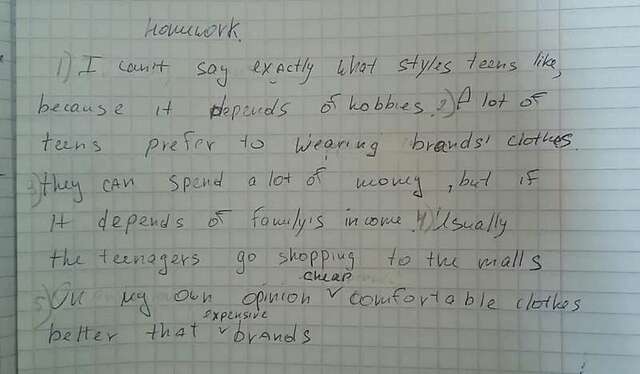 Homework.
1) I can't say exactly what styles teens like,
because it depends of hobbies. 2) A lot of
teens prefer to wearing brands' clothes.
3) they can spend a lot of money, but if
it depends of family's income. 4) Usually
the teenagers go shopping to the malls
cheap
5) On my own opinion v comfortable clothes
expensive
better that v brands